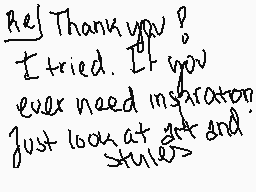 Re/ Thank you!
I tried. If you
ever need inspiraton
Just look at art and
styles